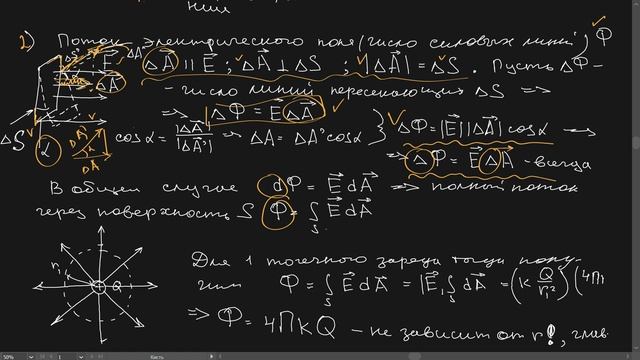 ний
2) Поток электрического поля (число силовых линий) Φ
ΔA⃗ ∥ E⃗ ; ΔA⃗ ⊥ ΔS ; |ΔA⃗| = ΔS. Пусть ΔΦ –
– число линий пересекающих ΔS =>
=> ΔΦ = E⃗ΔA⃗
cosα = |ΔA⃗|/|ΔA⃗'| => ΔA = ΔA'cosα } ΔΦ = |E⃗||ΔA⃗|cosα =>
=> ΔΦ = E⃗ΔA⃗ – всегда
В общем случае dΦ = E⃗dA⃗ => полный поток
через поверхность S Φ = ∫ₛ E⃗dA⃗
Для 1 точечного заряда тогда полу-
чим Φ = ∫ₛ E⃗dA⃗ = |E⃗|∫ₛ dA⃗ = (k Q/r₁²)(4Π
=> Φ = 4ΠkQ – не зависит от r!, глав
ΔS
α
E⃗
ΔA⃗
ΔA'
ΔA
r₁
Q
50%
1
Кисть